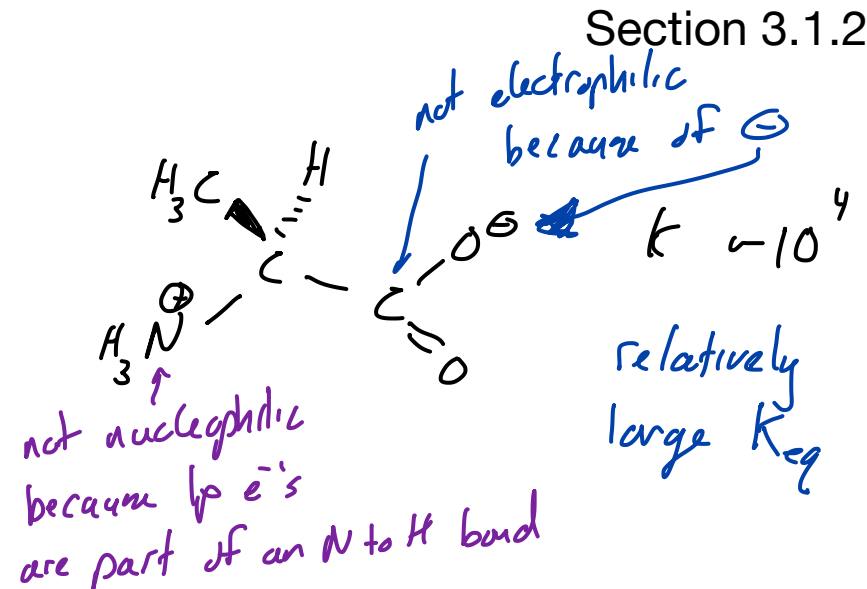 Section 3.1.2
not electrophilic
because of ⊖
H₃C H
C
O⊖
K ~10⁴
⊕
H₃N
C
O
relatively
large Keq
not nucleophilic
because lp e⁻'s
are part of an N to H bond